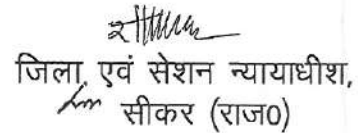 जिला एवं सेशन न्यायाधीश,
सीकर (राज0)